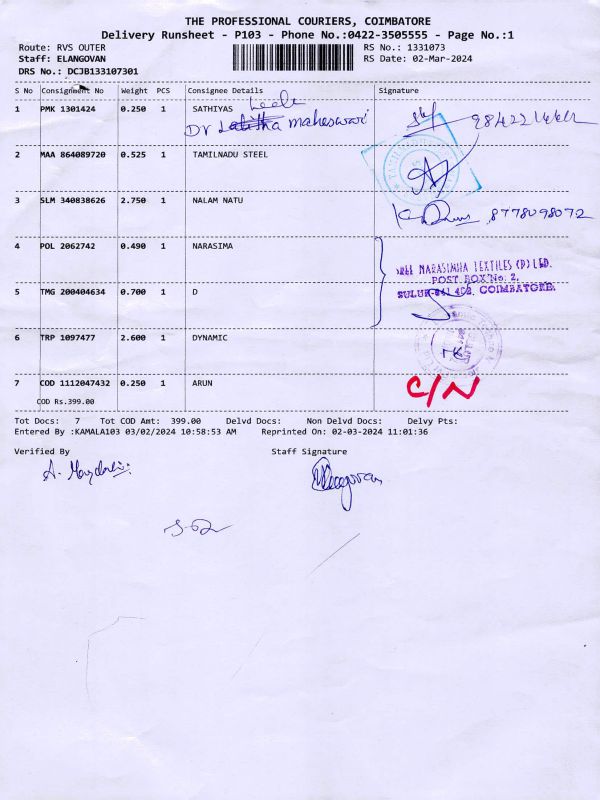 THE PROFESSIONAL COURIERS, COIMBATORE
Delivery Runsheet - P103 - Phone No.:0422-3505555 - Page No.:1
Route: RVS OUTER RS No.: 1331073
Staff: ELANGOVAN RS Date: 02-Mar-2024
DRS No.: DCJB133107301
S No Consignment No Weight PCS Consignee Details Signature
1 PMK 1301424 0.250 1 SATHIYAS Leela
Dr Lalitha maheswari
2 MAA 864089720 0.525 1 TAMILNADU STEEL
3 SLM 340838626 2.750 1 NALAM NATU
8778098072
4 POL 2062742 0.490 1 NARASIMA
SREE NARASIMHA TEXTILES (P) LTD.
POST BOX No: 2,
SULUR-641 402, COIMBATORE.
5 TMG 200404634 0.700 1 D
6 TRP 1097477 2.600 1 DYNAMIC
7 COD 1112047432 0.250 1 ARUN C/N
COD Rs.399.00
Tot Docs: 7 Tot COD Amt: 399.00 Delvd Docs: Non Delvd Docs: Delvy Pts:
Entered By :KAMALA103 03/02/2024 10:58:53 AM Reprinted On: 02-03-2024 11:01:36
Verified By Staff Signature